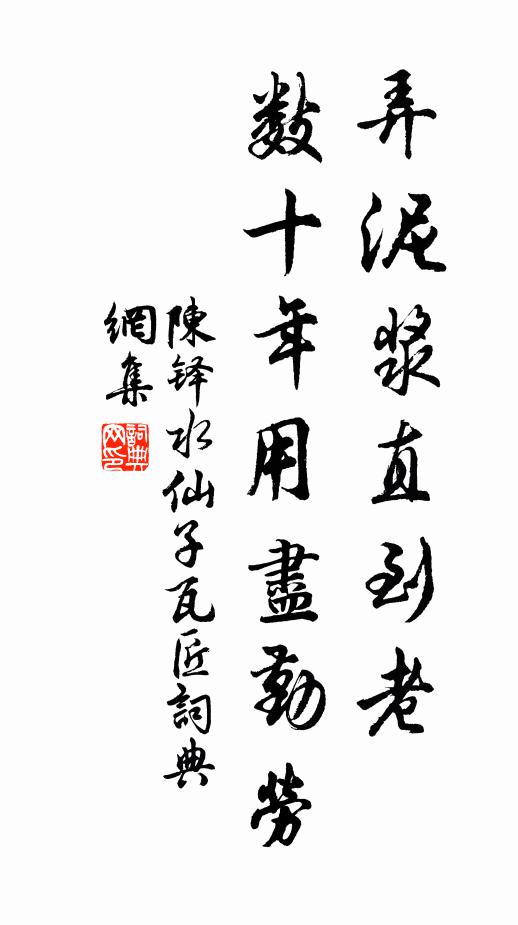 弄泥漿直到老
數十年用盡勤勞
陳铎水仙子瓦匠詞典
網集
詞典網印